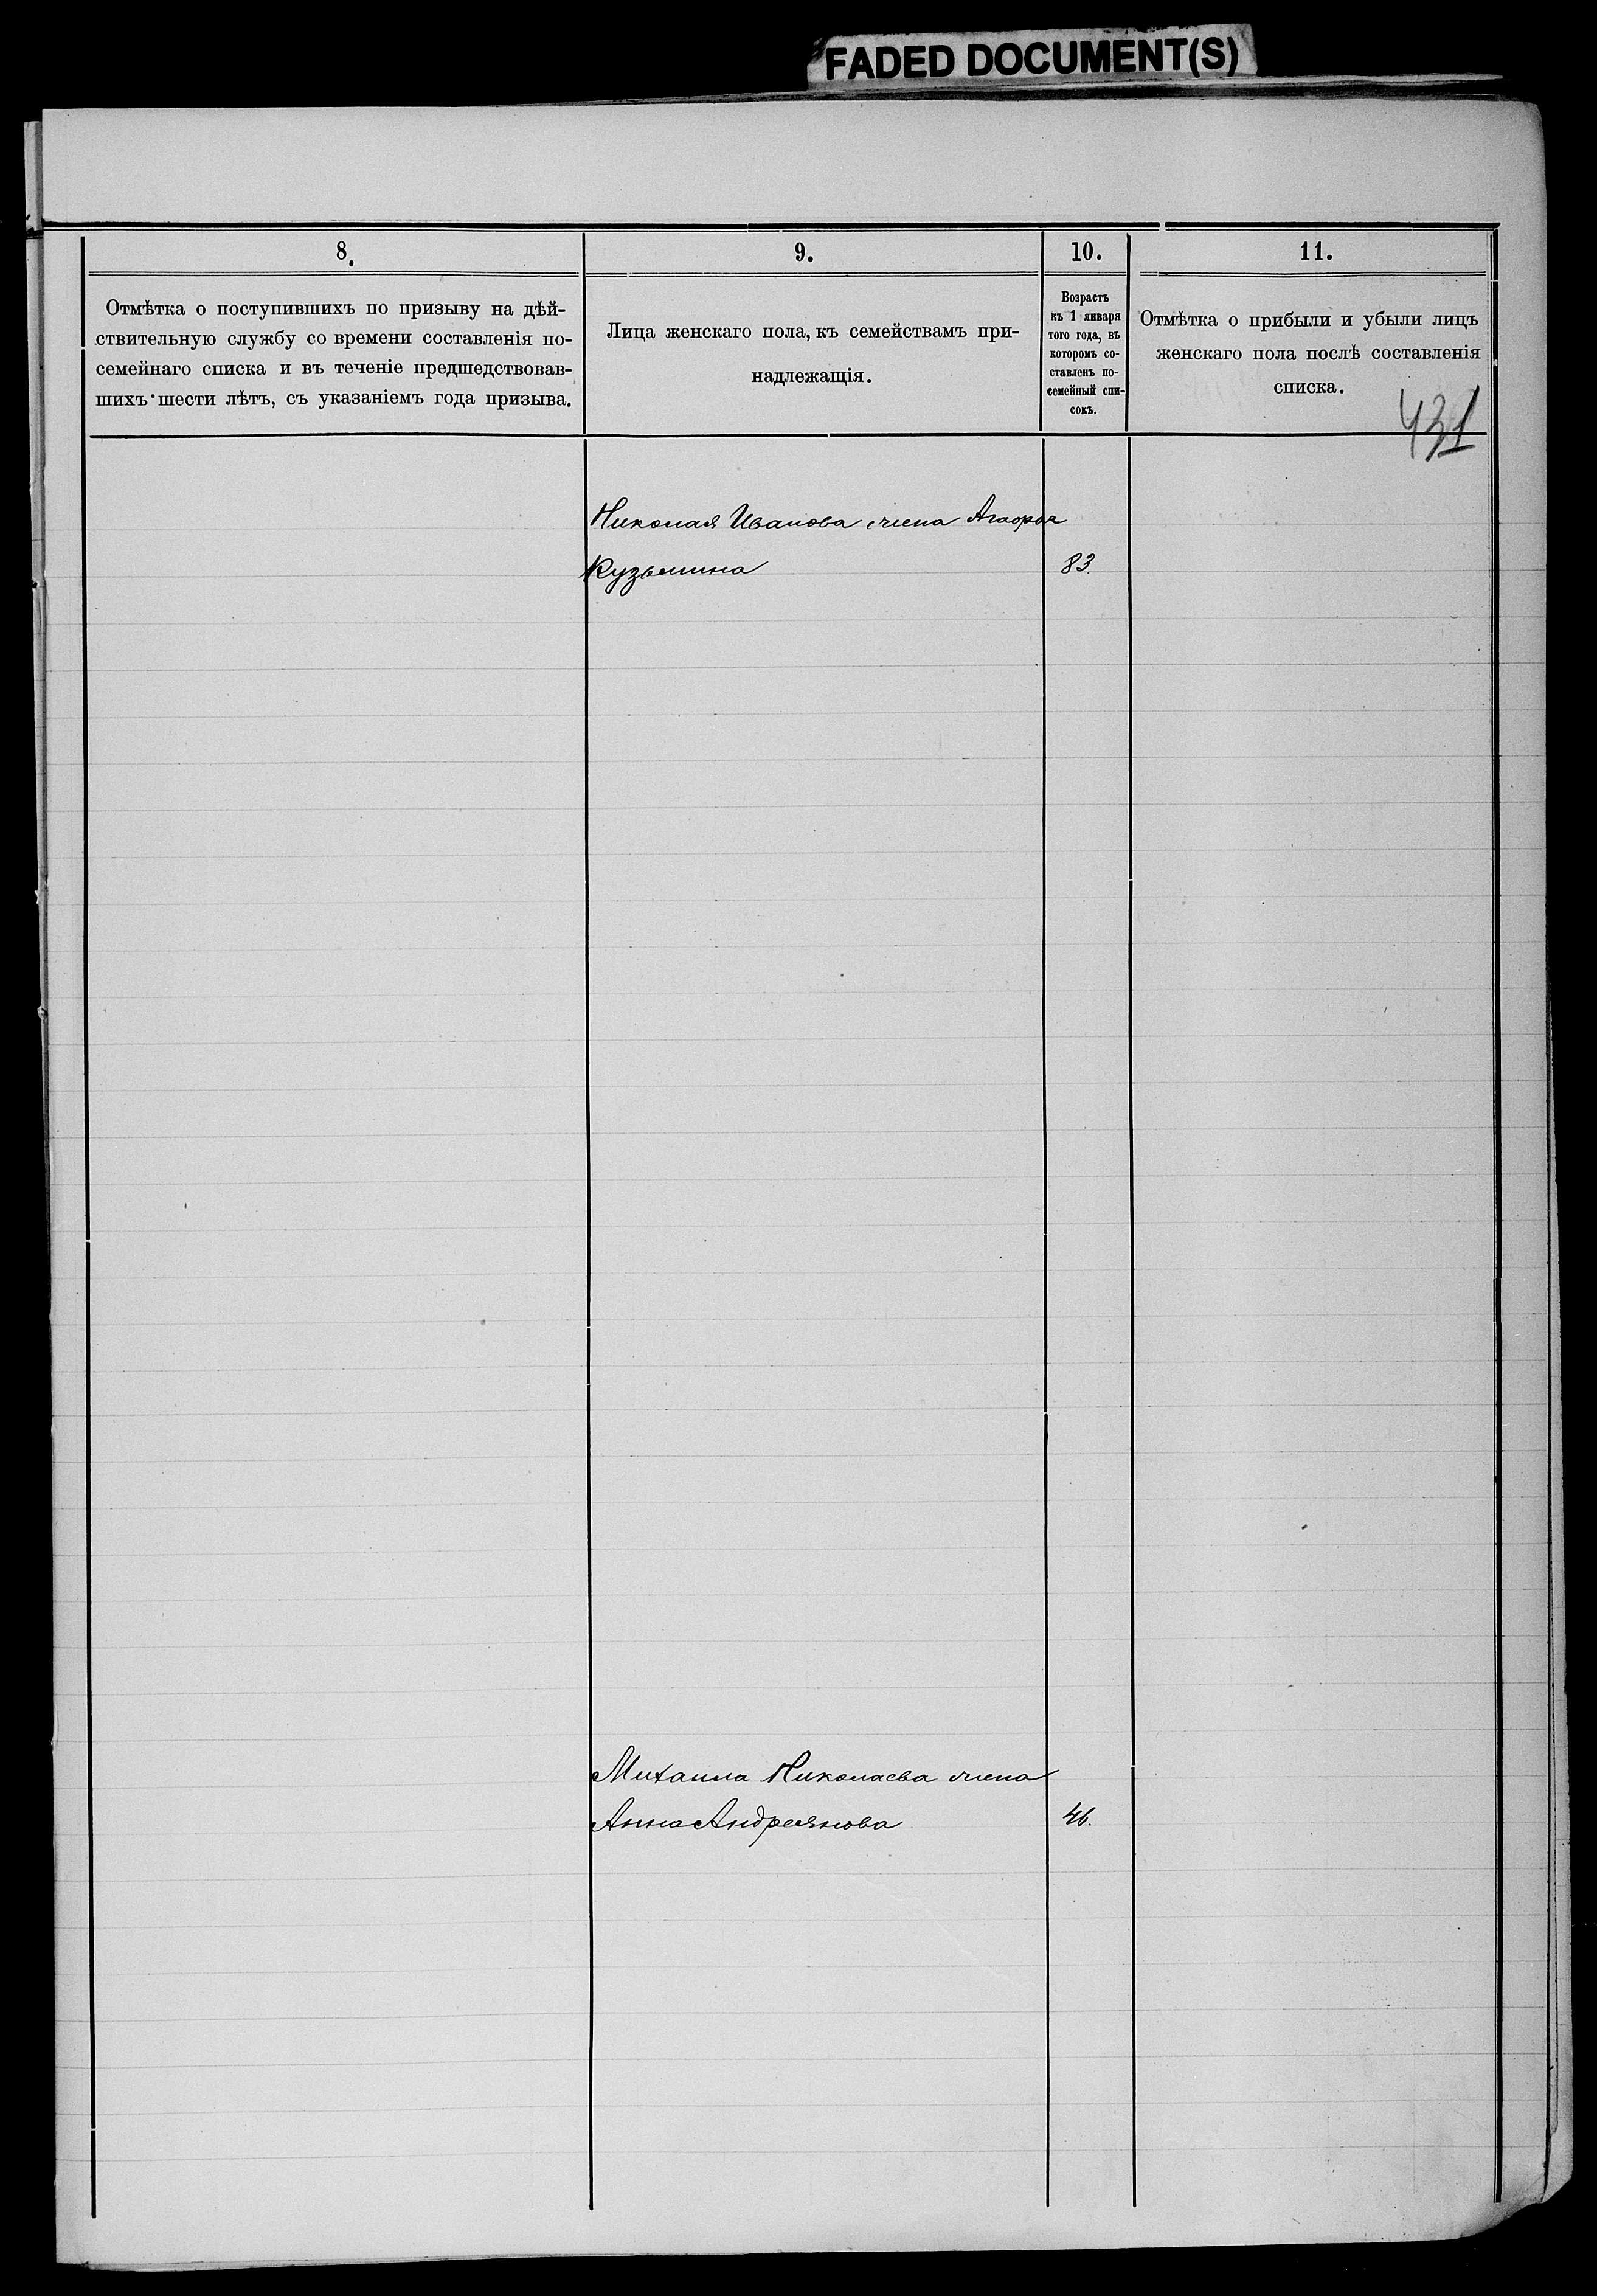 FADED DOCUMENT(S)
8.
9.
10.
11.
Отмѣтка о поступившихъ по призыву на дѣй-
ствительную службу со времени составленія по-
семейнаго списка и въ теченіе предшедствовав-
шихъ шести лѣтъ, съ указаніемъ года призыва.
Лица женскаго пола, къ семействамъ при-
надлежащія.
Возрастъ
къ 1 января
того года, въ
которомъ со-
ставленъ по-
семейный спи-
сокъ.
Отмѣтка о прибыли и убыли лицъ
женскаго пола послѣ составленія
списка.
431
Николая Иванова жена Агафья
Кузьмина 83.
Михаила Николаева жена
Анна Андреянова 46.